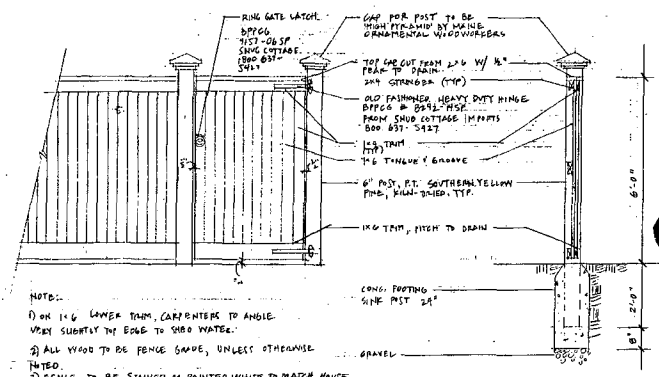 RING GATE LATCH
BPPCG
9157-06SP
SNUG COTTAGE
1800 637-
5427
CAP FOR POST TO BE
'HIGH PYRAMID' BY MAINE
ORNAMENTAL WOODWORKERS
TOP CAP CUT FROM 2×6 W/ ½"
PEAK TO DRAIN.
2×4 STRINGER (TYP)
OLD FASHIONED HEAVY DUTY HINGE
BPPCG # 8292-18SP
FROM SNUG COTTAGE IMPORTS
800 637-5427
TRIM
(TYP)
1×6 TONGUE & GROOVE
6" POST, P.T. SOUTHERN YELLOW
PINE, KILN-DRIED, TYP.
1×6 TRIM, PITCH TO DRAIN
6'-0"
CONC. FOOTING
SINK POST 24"
2'-0"
8"
GRAVEL
NOTE:
1) ON 1×6 LOWER TRIM, CARPENTERS TO ANGLE
VERY SLIGHTLY TOP EDGE TO SHED WATER.
2) ALL WOOD TO BE FENCE GRADE, UNLESS OTHERWISE
NOTED.
3) FENCE TO BE STAINED OR PAINTED WHITE TO MATCH HOUSE